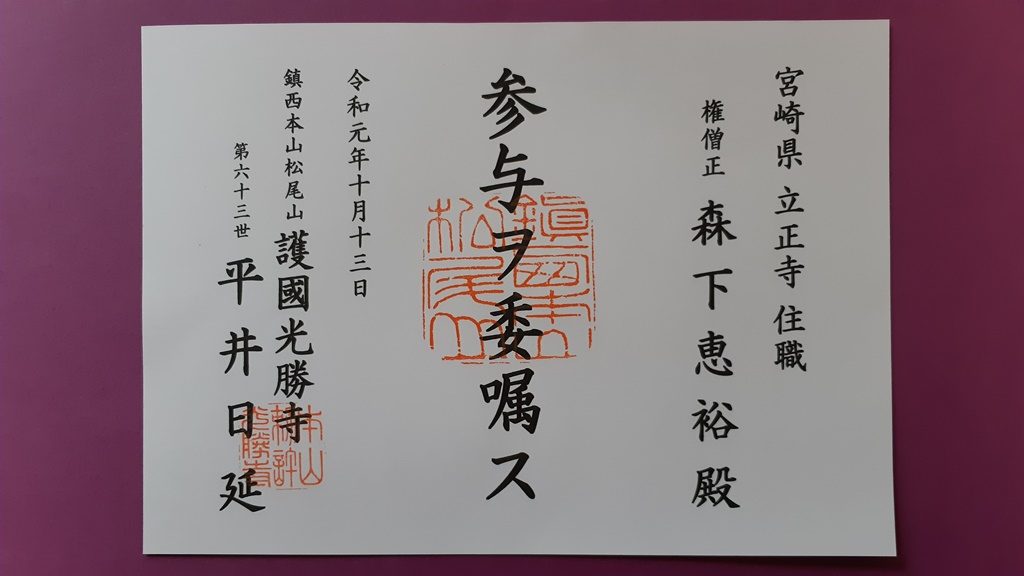 宮崎県 立正寺 住職
権僧正 森下恵裕殿
参与ヲ委嘱ス
令和元年十月十三日
鎮西本山松尾山 護國光勝寺
第六十三世 平井日延
鎭西本山
松尾山